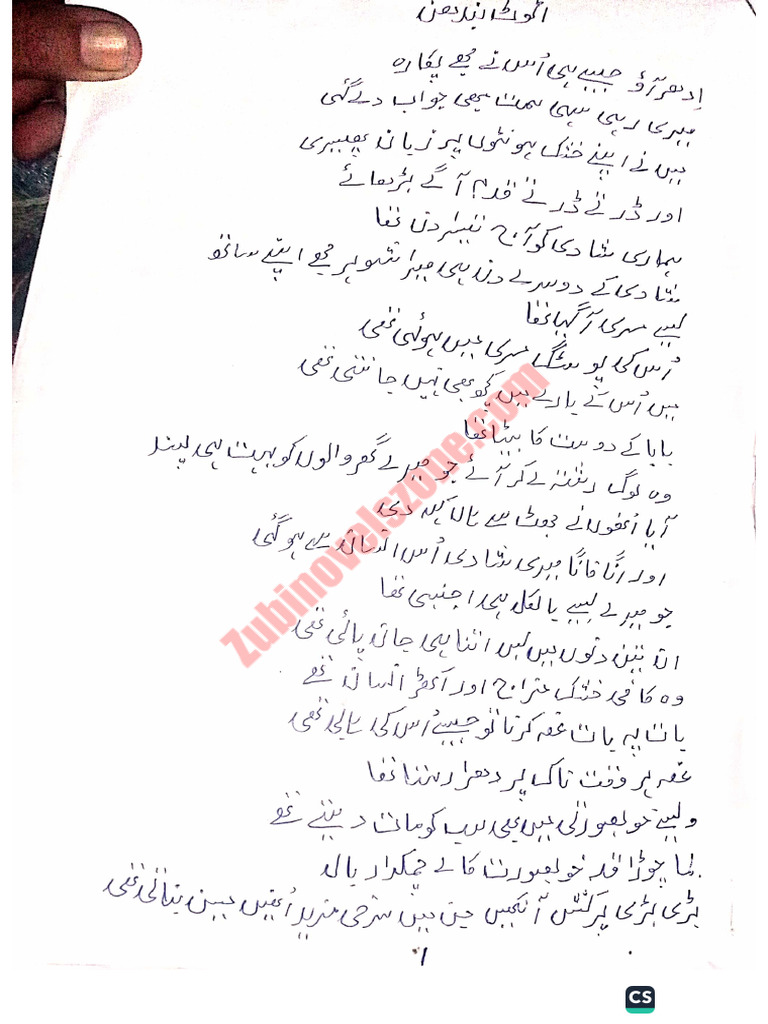 اٹوٹ بندھن
اِدھر آؤ جیسے ہی اُس نے مجھے پکارہ
میری رہی سہی ہمت بھی جواب دے گئی
میں نے اپنے خشک ہونٹوں پر زبان پھیری
اور ڈرتے ڈرتے قدم آگے بڑھائے
ہماری شادی کو آج تیسرا دن تھا
شادی کے دوسرے دن ہی میرا شوہر مجھے اپنے ساتھ
لیے مری آ گیا تھا
اُس کی پوسٹنگ مری میں ہوئی تھی
میں اُس کے بارے میں کچھ بھی نہیں جانتی تھی
بابا کے دوست کا بیٹا تھا
وہ لوگ رشتہ لے کر آئے جو میرے گھر والوں کو بہت ہی پسند
آیا اُنھوں نے جھٹ سے ہاں کہہ دی
اور اناً فاناً میری شادی اُس انسان سے ہو گئی
جو میرے لیے بالکل ہی اجنبی تھا
ان تین دنوں میں میں اتنا ہی جان پائی تھی
وہ کافی خشک مزاج اور اکھڑ انسان تھے
بات بہ بات غصہ کرنا تو جیسے اُس کی ہابی تھی
غصہ ہر وقت ناک پر دھرا رہتا تھا
ویسے خوبصورتی میں بھی سب کو مات دیتے تھے
لمبا چوڑا قد خوبصورت کالے چمکدار بال
بڑی بڑی پرکشش آنکھیں جن میں سرخی مزید اُنھیں حسین بناتی تھی
1
Zubinovelszone.com
CS